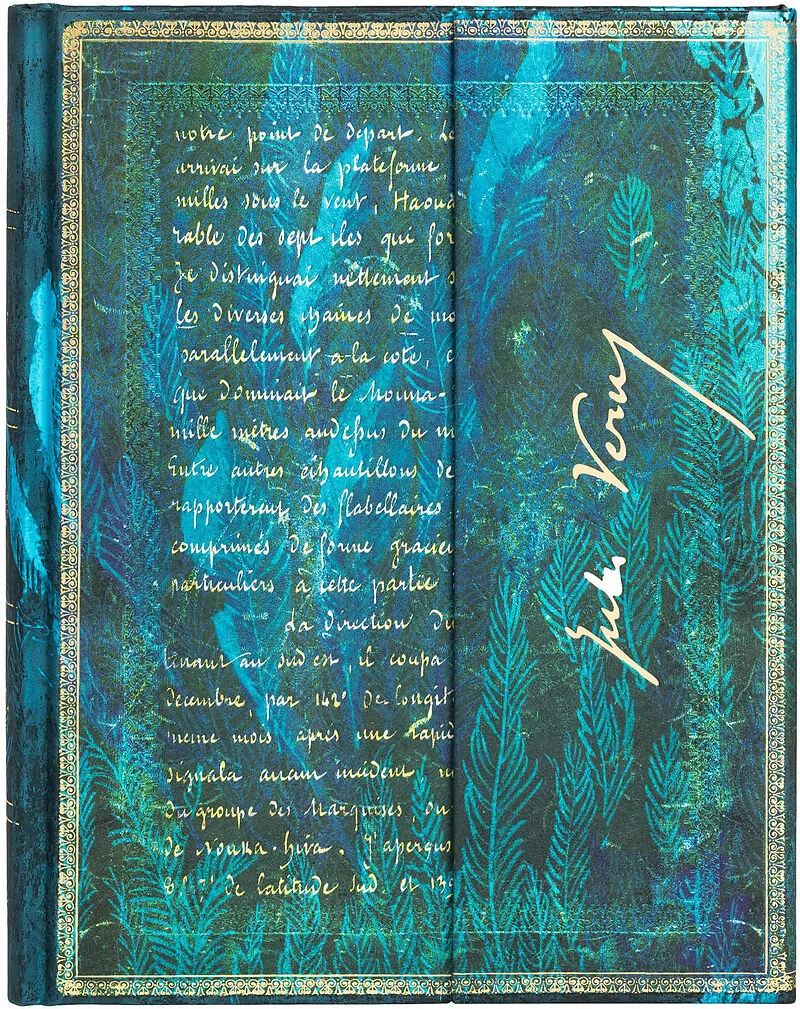 notre point de départ. Le
arrivai sur la plateforme
milles sous le vent, Haoua
rable des sept iles qui for
Je distinguai nettement s
les diverses chaines de mo
parallelement a la coté, e
que dominait le Mouna-
mille mètres audessus du m
Entre autres échantillons de
rapporterent des flabellaires
comprimés de forme gracieu
particuliers à cette partie
La direction du
tenant au sud est, il coupa
decembre, par 142° de longit
meme mois après une rapid
signala aucun incident, n
du groupe des Marquises, ou
de Nouka-hiva. J'aperçus
8° 7' de latitude sud, et 139
Jules Verne